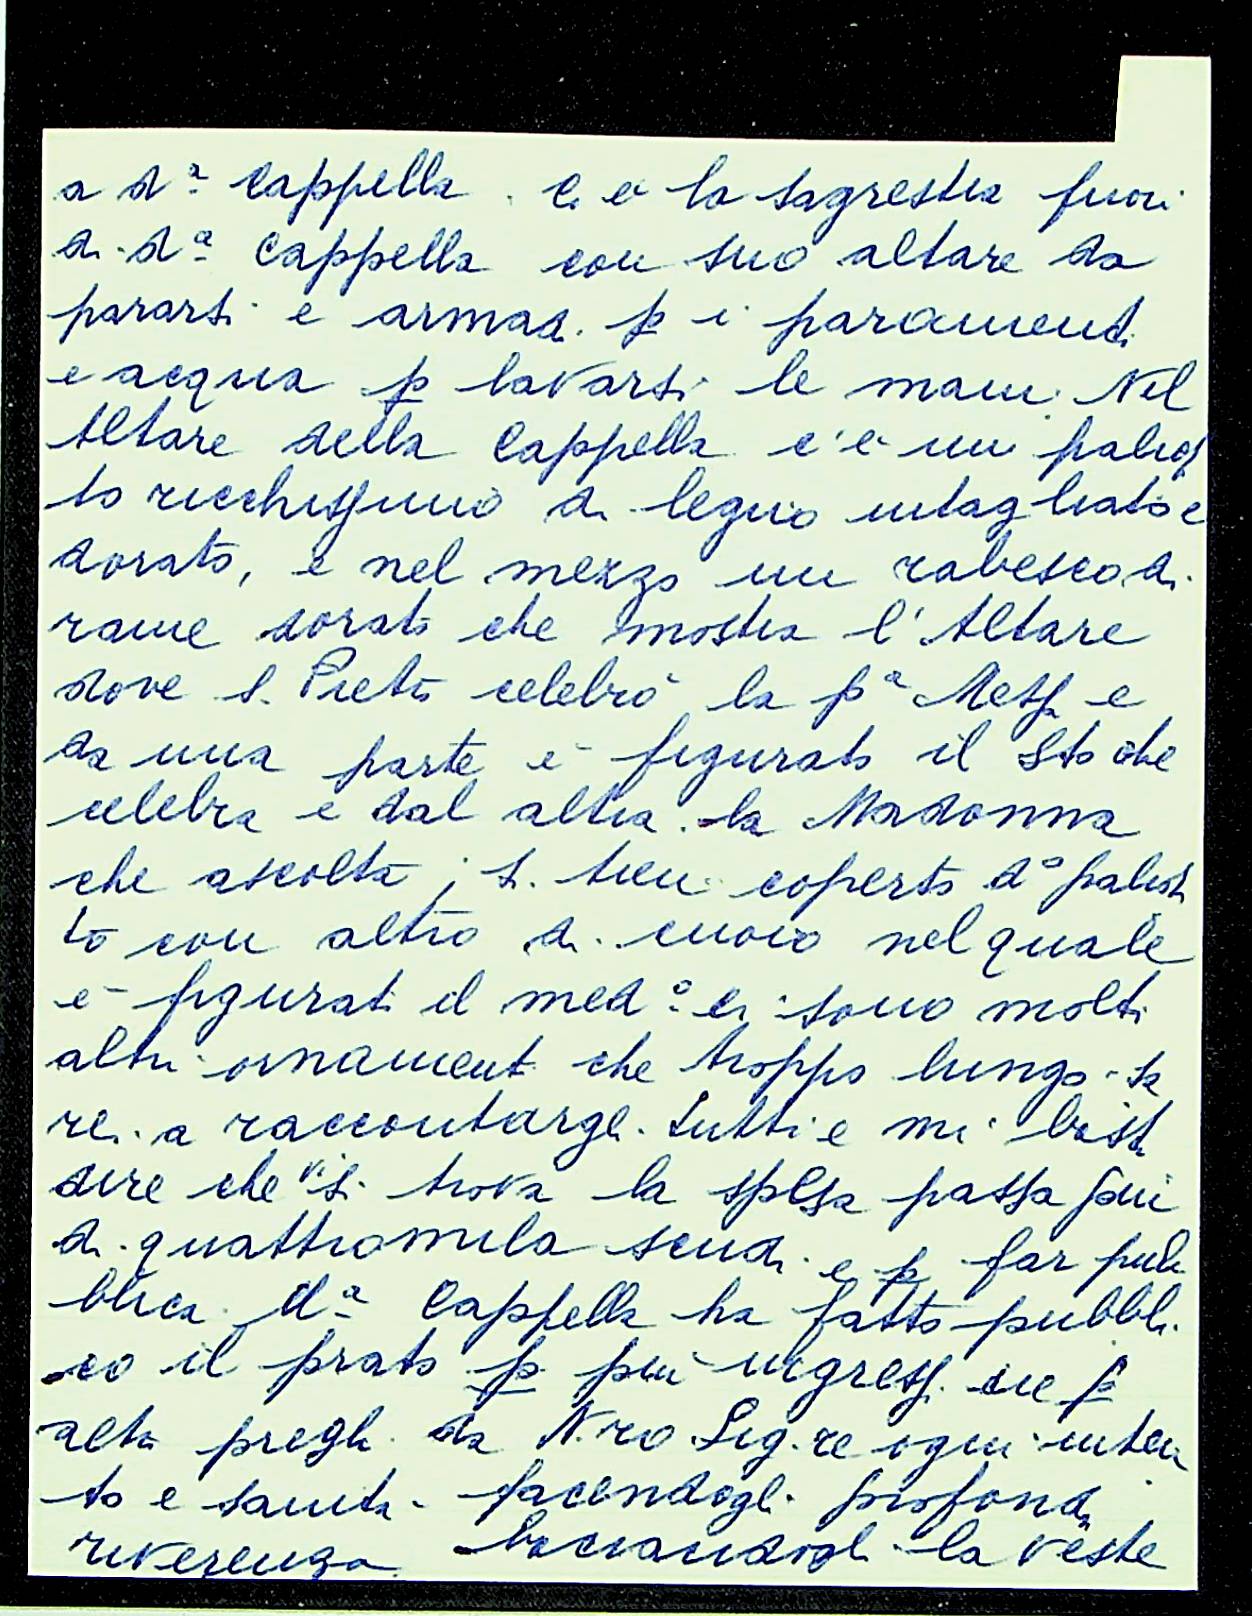 a d.ª Cappella. C. è la sagrestia fuori
di d.ª Cappella con suo altare da
pararsi e armadi p i paramenti
e acqua p lavarsi le mani. Nel
Altare della Cappella c'è un paliot
to ricchissimo di legno intagliato e
dorato, e nel mezzo un rabesco di
rame dorato che mostra l'Altare
dove S. Pietro celebrò la pª Messa e
da una parte è figurato il Sto che
celebra e dal altra la Madonna
che ascolta; si tien coperto d.º paliot
to con altro di cuoio nel quale
è figurati il med.º ci sono molti
altri ornamenti che troppo lungo sa
rei a raccontargli tutti e mi basti
dire che vi si trova la spesa passa più
di quattromila scudi e p far pub
blica d.ª Cappella ha fatto pubbli
co il prato p più ingressi
pregh. da N.ro Sig.re ogni inten
to e sanità facendogli profonda
riverenza baciandogli la veste